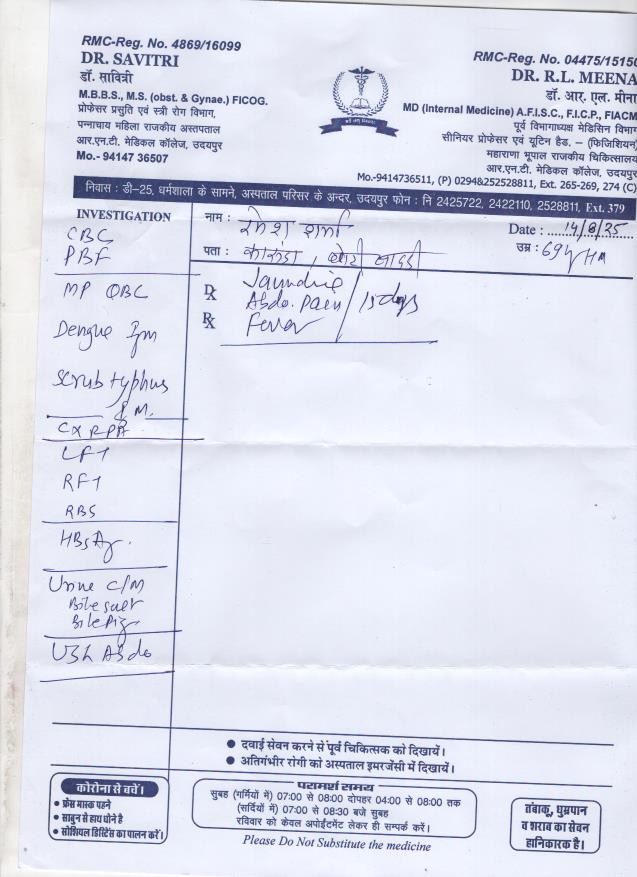 RMC-Reg. No. 4869/16099
DR. SAVITRI
डॉ. सावित्री
M.B.B.S., M.S. (obst. & Gynae.) FICOG.
प्रोफेसर प्रसुति एवं स्त्री रोग विभाग,
पन्नाचाय महिला राजकीय अस्तपताल
आर.एन.टी. मेडिकल कॉलेज, उदयपुर
Mo.- 94147 36507
RMC-Reg. No. 04475/15150
DR. R.L. MEENA
डॉ. आर. एल. मीना
MD (Internal Medicine) A.F.I.S.C., F.I.C.P., FIACM
पूर्व विभागाध्यक्ष मेडिसिन विभाग
सीनियर प्रोफेसर एवं यूटिन हैड. – (फिजिशियन)
महाराणा भूपाल राजकीय चिकित्सालय
आर.एन.टी. मेडिकल कॉलेज, उदयपुर
Mo.-9414736511, (P) 0294&252528811, Ext. 265-269, 274 (C)
निवास : डी-25, धर्मशाला के सामने, अस्पताल परिसर के अन्दर, उदयपुर फोन : नि 2425722, 2422110, 2528811, Ext. 379
INVESTIGATION
CBC
PBF
MP QBC
Dengue Igm
Scrub typhus
IgM.
CXR PA
LFT
RFT
RBS
HBsAg.
Urine C/M
Bile salt
Bile Pig
USG Abdo
नाम : रमेश शर्मा
Date : 14/8/25
पता :
उम्र : 69y/Hm
Dx Jaundice
Abdo. Pain / 15 days
Rx Fever
● दवाई सेवन करने से पूर्व चिकित्सक को दिखायें।
● अतिगंभीर रोगी को अस्पताल इमरजेंसी में दिखायें।
कोरोना से बचें।
● फ्रेस मास्क पहने
● साबुन से हाथ धोने है
● सोशियल डिस्टिेंस का पालन करें।
परामर्श समय
सुबह (गर्मियों में) 07:00 से 08:00 दोपहर 04:00 से 08:00 तक
(सर्दियों में) 07:00 से 08:30 बजे सुबह
रविवार को केवल अपोईंटमेंट लेकर ही सम्पर्क करें।
Please Do Not Substitute the medicine
तंबाकू, घुम्रपान
व शराब का सेवन
हानिकारक है।